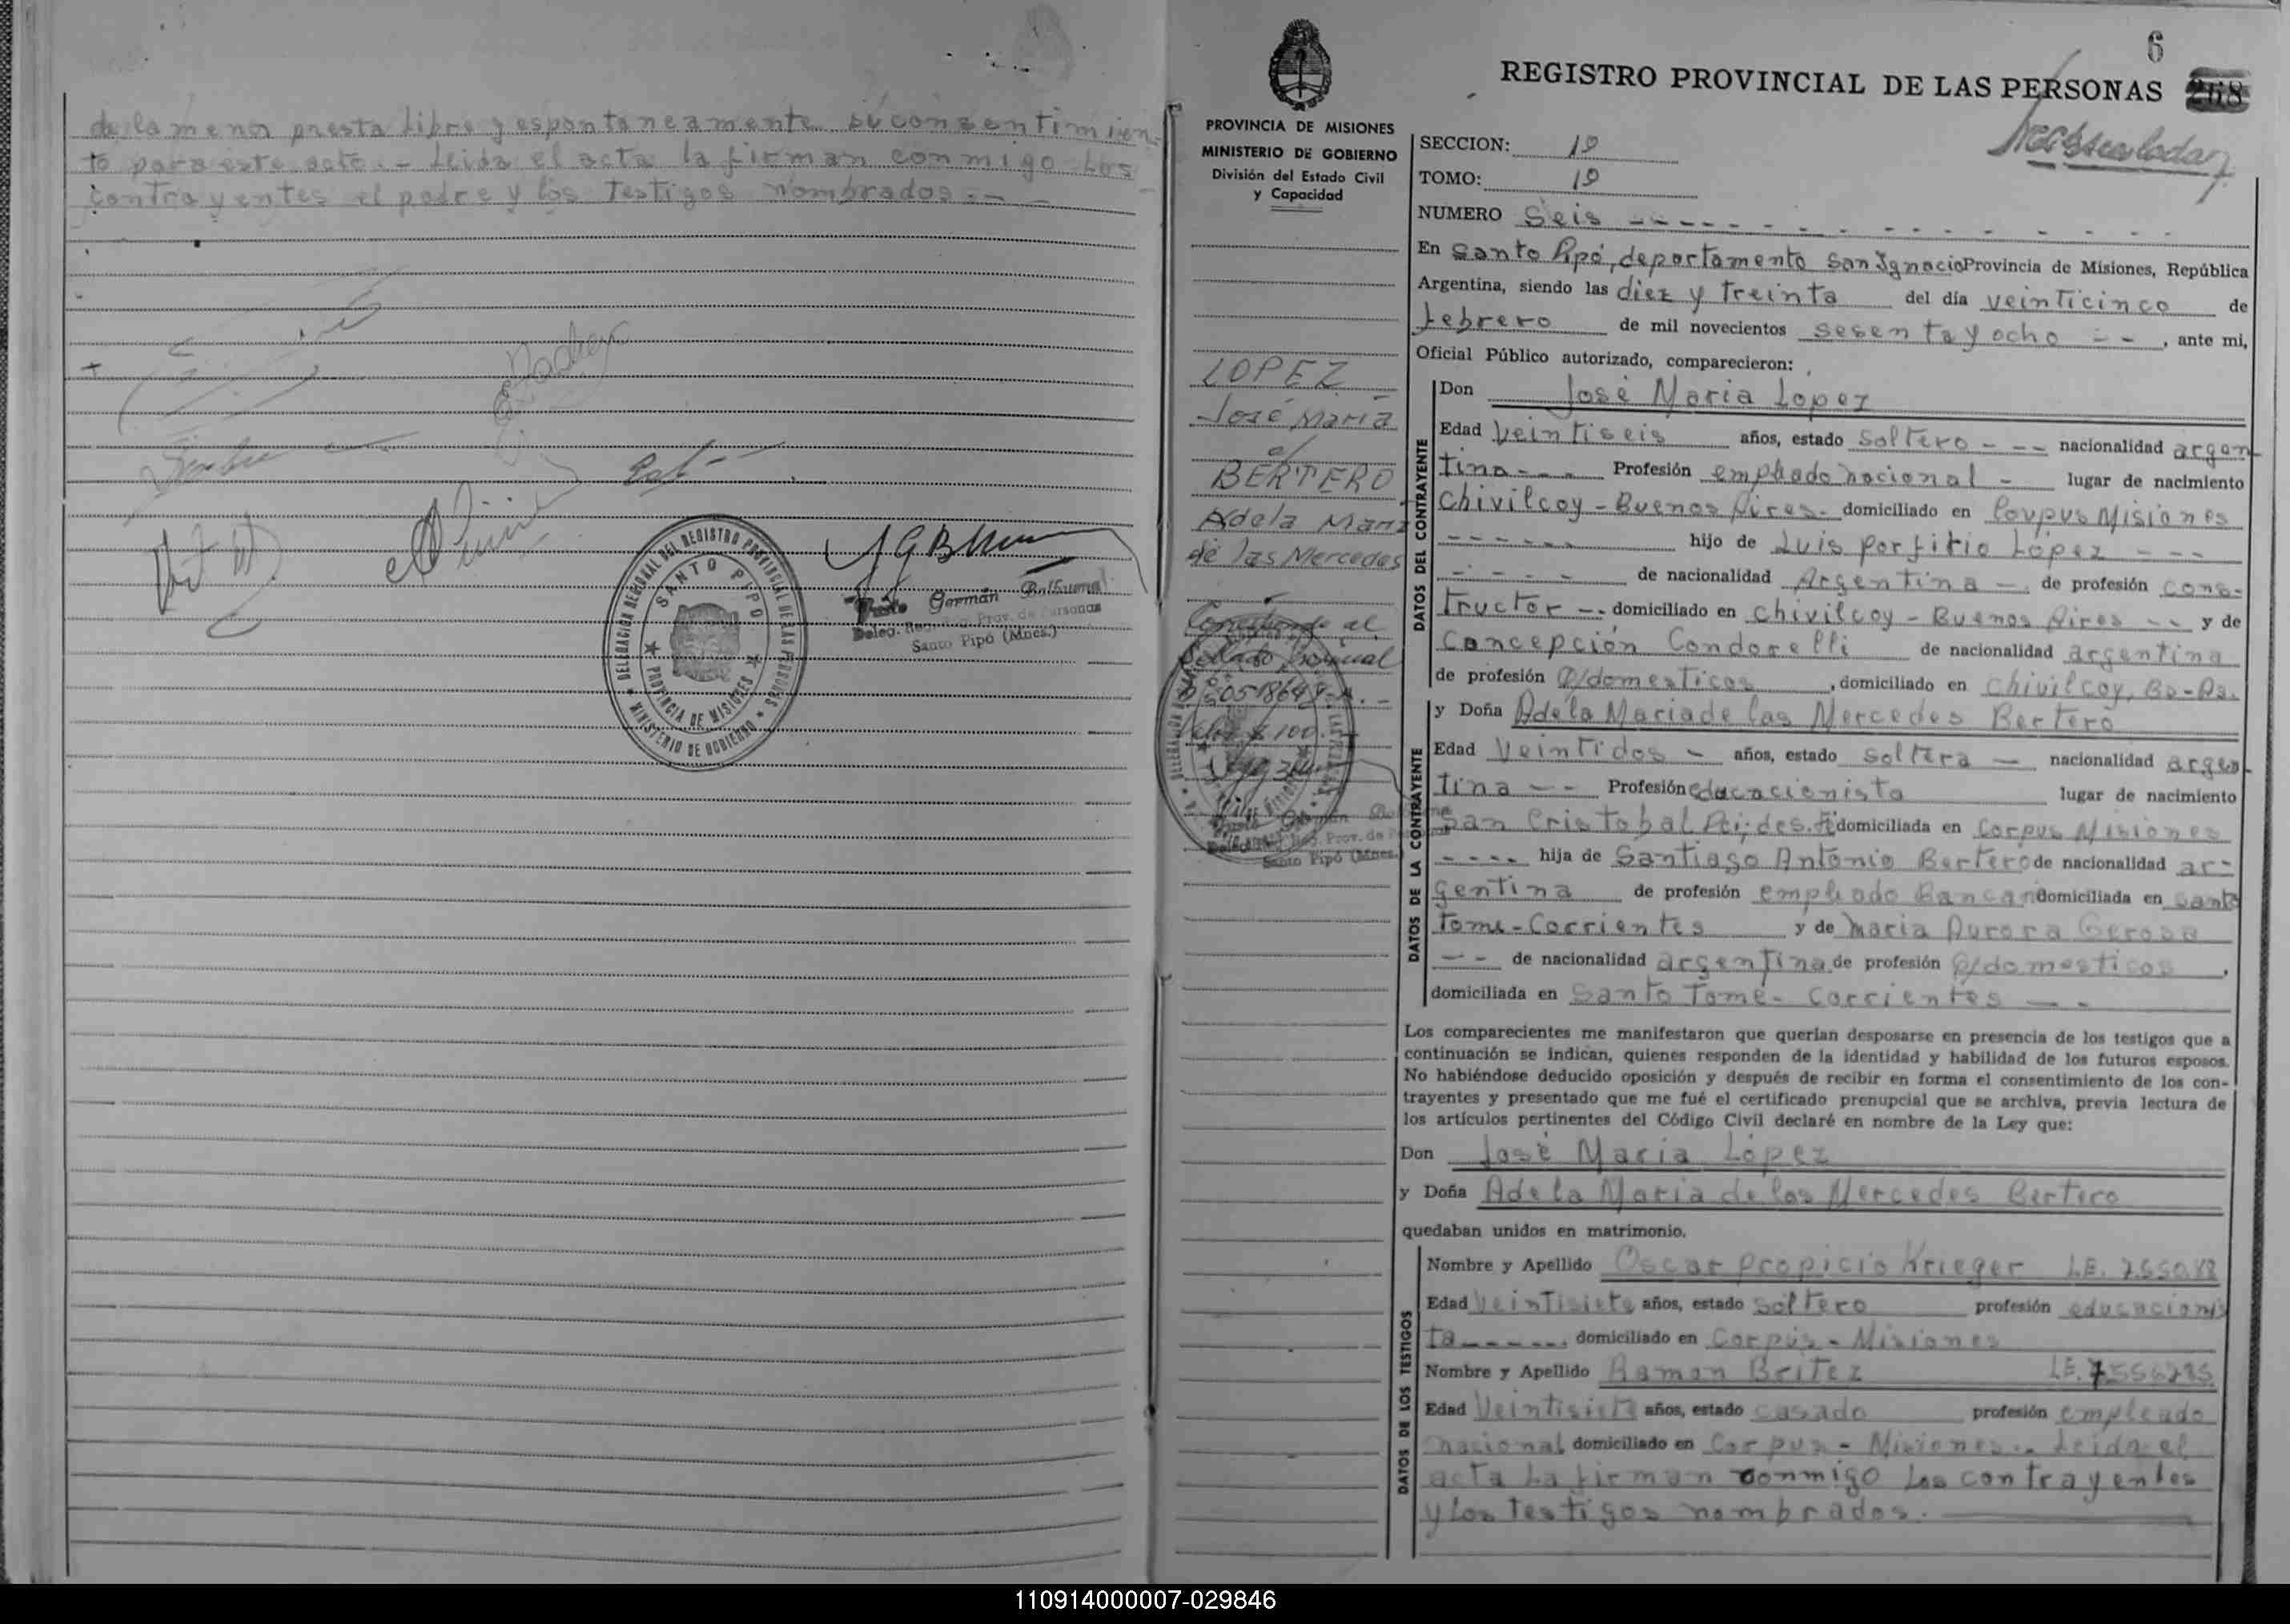 de la menor presta libre y espontaneamente su consentimien-
to para este acto.- Leida el acta la firman conmigo los
contrayentes el padre y los testigos nombrados.-
DELEGACION REGIONAL DEL REGISTRO PROVINCIAL DE LAS PERSONAS
SANTO PIPO
PROVINCIA DE MISIONES
MINISTERIO DE GOBIERNO
Germán Balbuena
Deleg. Reg. Prov. de Personas
Santo Pipó (Mnes.)
6
REGISTRO PROVINCIAL DE LAS PERSONAS 268
PROVINCIA DE MISIONES
MINISTERIO DE GOBIERNO
División del Estado Civil
y Capacidad
LOPEZ
José María
c/
BERTERO
Adela María
de las Mercedes
Corresponde al
Sellado
Valor $ 100.-
Santo Pipó (Mnes.)
SECCION: 19
TOMO: 19
NUMERO Seis
En Santo Pipó, departamento San Ignacio Provincia de Misiones, República
Argentina, siendo las diez y treinta del día veinticinco de
febrero de mil novecientos sesenta y ocho - -, ante mi,
Oficial Público autorizado, comparecieron:
DATOS DEL CONTRAYENTE
Don José Maria López
Edad Veintiseis años, estado soltero - - - nacionalidad argen
tina - - - Profesión empleado nacional - lugar de nacimiento
Chivilcoy - Buenos Aires - domiciliado en Corpus Misiones
hijo de Luis Porfirio López - - -
de nacionalidad Argentina - de profesión cons-
tructor - - domiciliado en Chivilcoy - Buenos Aires - - y de
Concepción Condorelli de nacionalidad argentina
de profesión Q/domesticos, domiciliado en Chivilcoy, Bs-As.
DATOS DE LA CONTRAYENTE
y Doña Adela Maria de las Mercedes Bertero
Edad Veintidos - años, estado soltera - nacionalidad argen
tina - - Profesión educacionista lugar de nacimiento
San Cristobal domiciliada en Corpus Misiones
- - - - hija de Santiago Antonio Bertero de nacionalidad ar-
gentina de profesión empleado Bancario domiciliada en Santo
Tome - Corrientes y de Maria Aurora Gerosa
- - de nacionalidad argentina de profesión Q/domesticos,
domiciliada en Santo Tome - Corrientes - -
Los comparecientes me manifestaron que querían desposarse en presencia de los testigos que a
continuación se indican, quienes responden de la identidad y habilidad de los futuros esposos.
No habiéndose deducido oposición y después de recibir en forma el consentimiento de los con-
trayentes y presentado que me fué el certificado prenupcial que se archiva, previa lectura de
los artículos pertinentes del Código Civil declaré en nombre de la Ley que:
Don José Maria López
y Doña Adela Maria de las Mercedes Bertero
quedaban unidos en matrimonio.
DATOS DE LOS TESTIGOS
Nombre y Apellido Oscar Propicio Krieger L.E.
Edad Veintisiete años, estado soltero profesión educacionis
ta - - - - - domiciliado en Corpus - Misiones
Nombre y Apellido Ramon Britez L.E. 7556285
Edad Veintisiete años, estado casado profesión empleado
nacional domiciliado en Corpus - Misiones - Leida el
acta la firman conmigo los contrayentes
y los testigos nombrados.
110914000007-029846